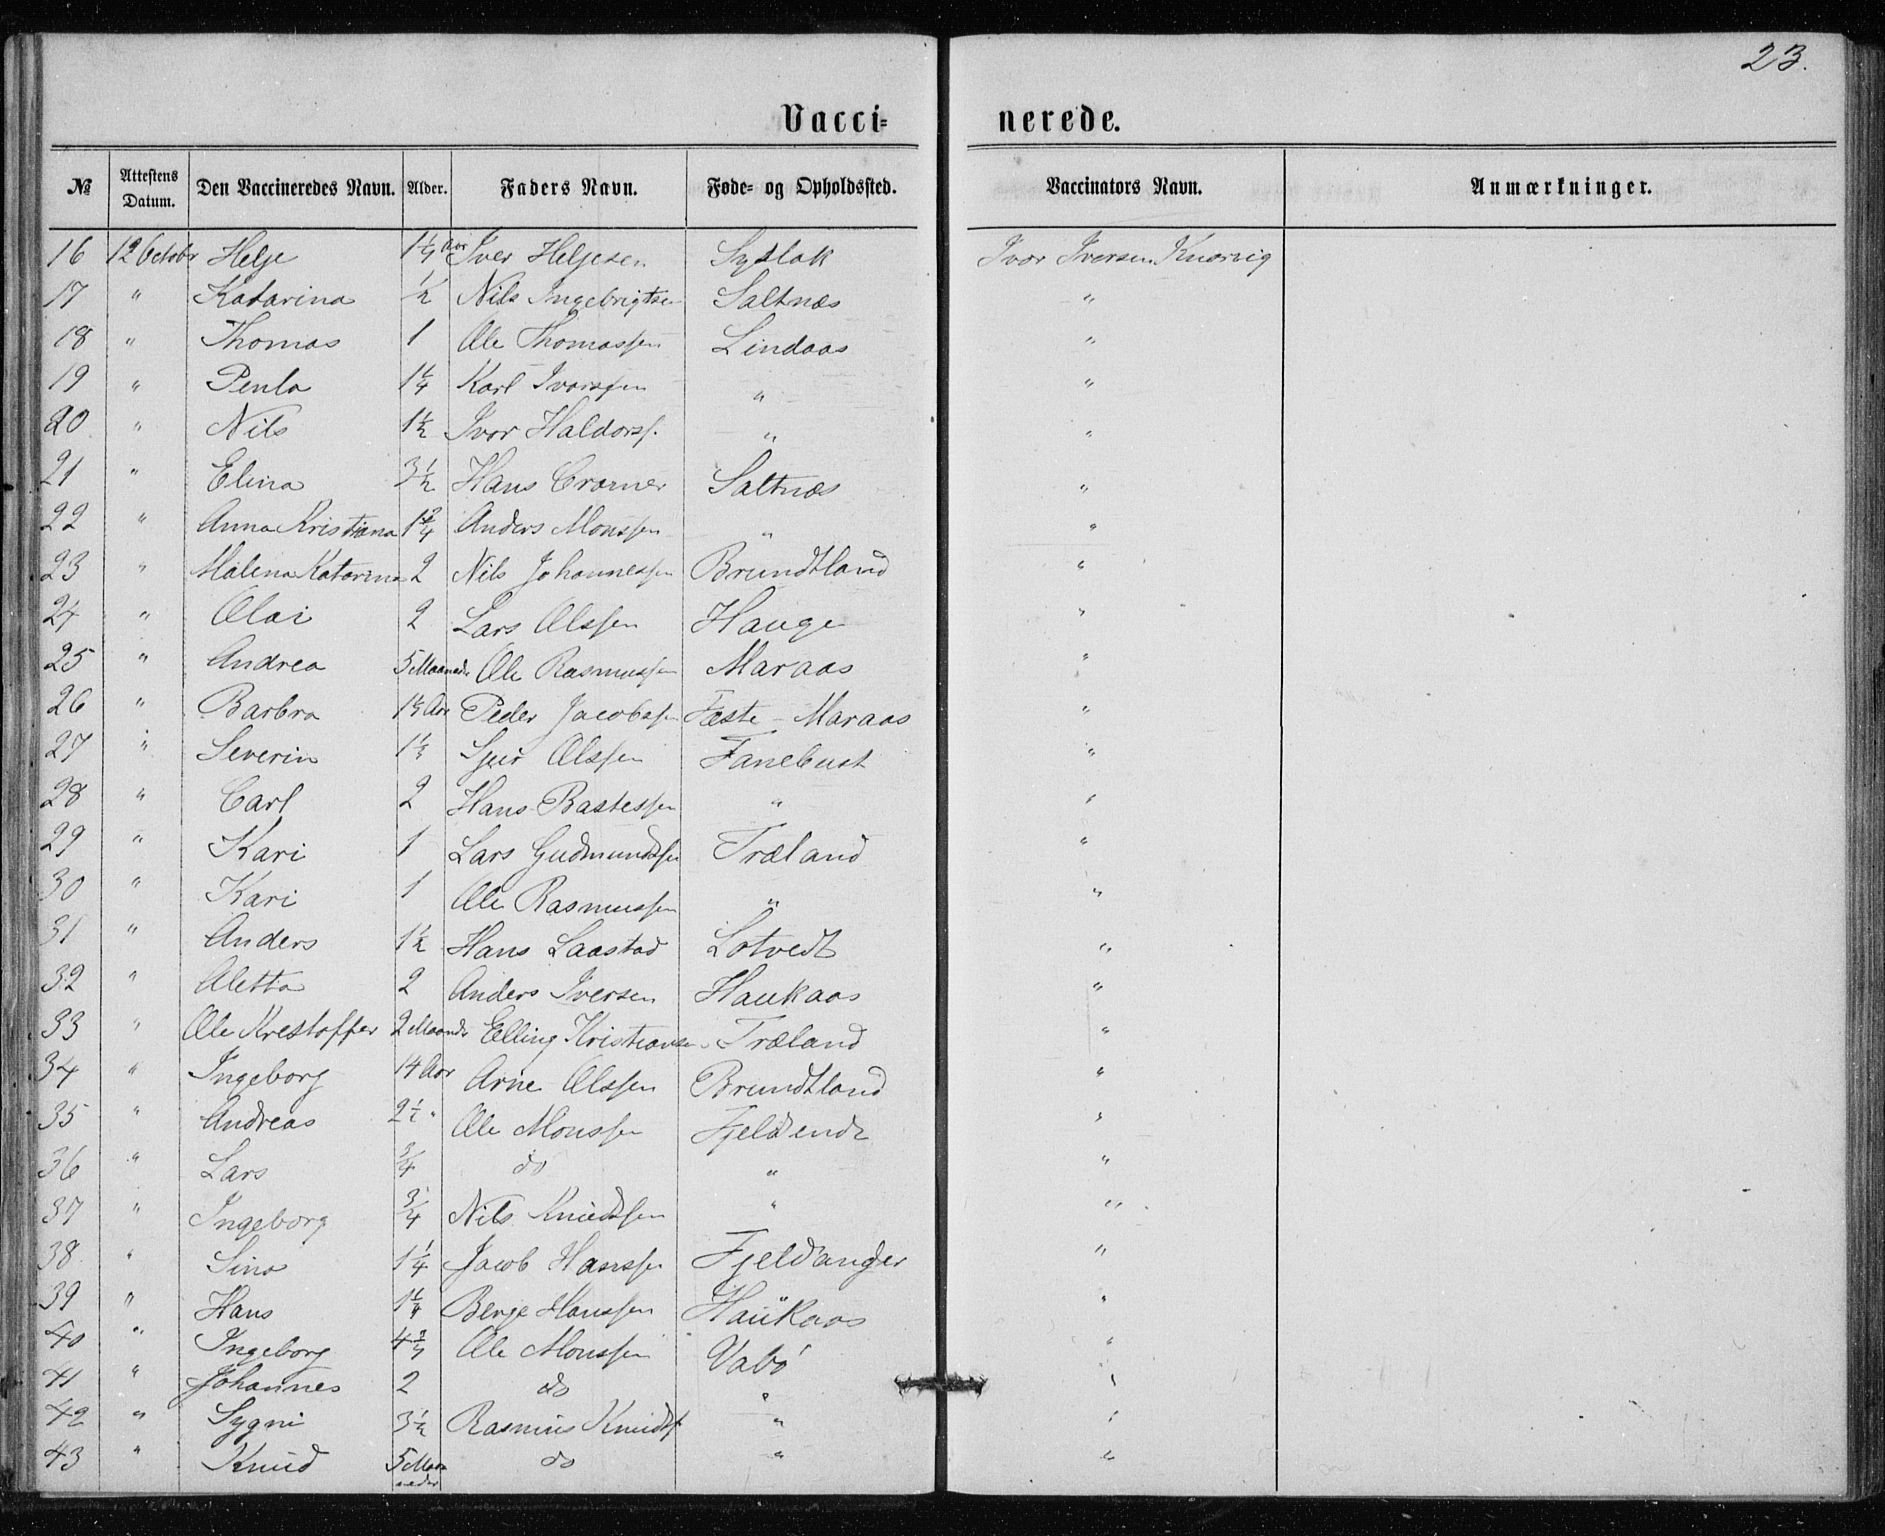 23.
Vaccinerede.
№ Attestens Datum. Den Vaccineredes Navn. Alder. Faders Navn. Føde- og Opholdssted. Vaccinators Navn. Anmærkninger.
16 12 Octobr Helje 1 1/4 Aar Iver Heljesen Syslak Ivor Iversen Knarvig
17 " Katarina 1/2 Nils Ingebrigtsen Saltnæs "
18 " Thomas 1 Ole Thomassen Lindaas "
19 " Penla 1 1/4 Karl Ivarssen " "
20 " Nils 1 1/2 Ivor Haldorss. " "
21 " Elina 3 1/2 Hans Cramer Saltnæs "
22 " Anna Kristiana 1 3/4 Anders Monssen " "
23 " Malena Katarina 2 Nils Johannessen Brundtland "
24 " Olai 2 Lars Olssen Hauge "
25 " Andrea 5 Maaneder Ole Rasmussen Maraas "
26 " Barbra 1 1/2 Aar Peder Jacobssen Fæste - Maraas "
27 " Severin 1 1/2 Sjur Olssen Fanebust "
28 " Carl 2 Hans Bastessen " "
29 " Kari 1 Lars Gudmundssen Træland "
30 " Kari 1 Ole Rasmussen " "
31 " Anders 1 1/2 Hans Laastad Lotvedt "
32 " Aletta 2 Anders Iversen Haukaas "
33 " Ole Krestoffer 2 Maander Elling Kristiansen Træland "
34 " Ingeborg 14 Aar Arne Olssen Brundtland "
35 " Andreas 2 1/2 " Ole Monssen Fjeldende "
36 " Lars 3/4 do " "
37 " Ingeborg 3/4 Nils Knudssen " "
38 " Sina 1 1/4 Jacob Hanssen Fjeldanger "
39 " Hans 1 1/4 Berge Hanssen Haukaas "
40 " Ingeborg 4 3/4 Ole Monssen Vabø "
41 " Johannes 2 do " "
42 " Sygni 3 1/2 Rasmus Knudss " "
43 " Knud 5 Maaneder do " "